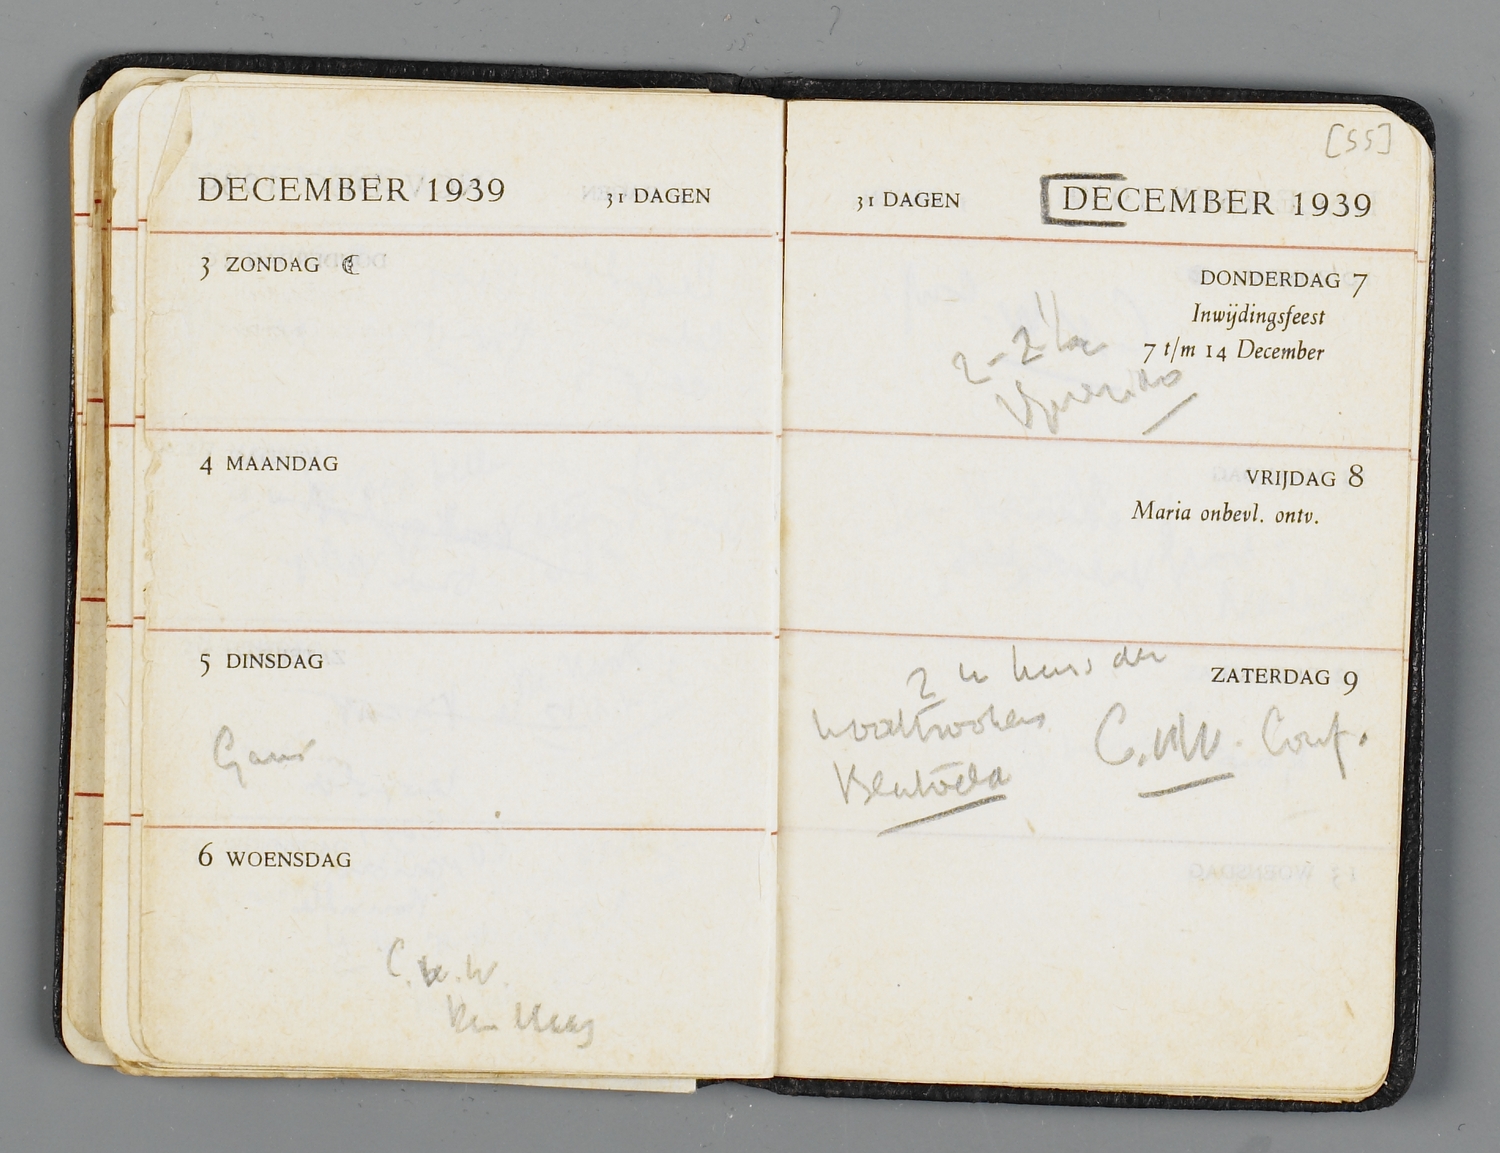 DECEMBER 1939 31 DAGEN
3 ZONDAG
4 MAANDAG
5 DINSDAG
6 WOENSDAG
C.H.W.
[55]
31 DAGEN DECEMBER 1939
DONDERDAG 7
Inwijdingsfeest
7 t/m 14 December
2-2 1/2
VRIJDAG 8
Maria onbevl. ontv.
ZATERDAG 9
2 u huis der
Conf.